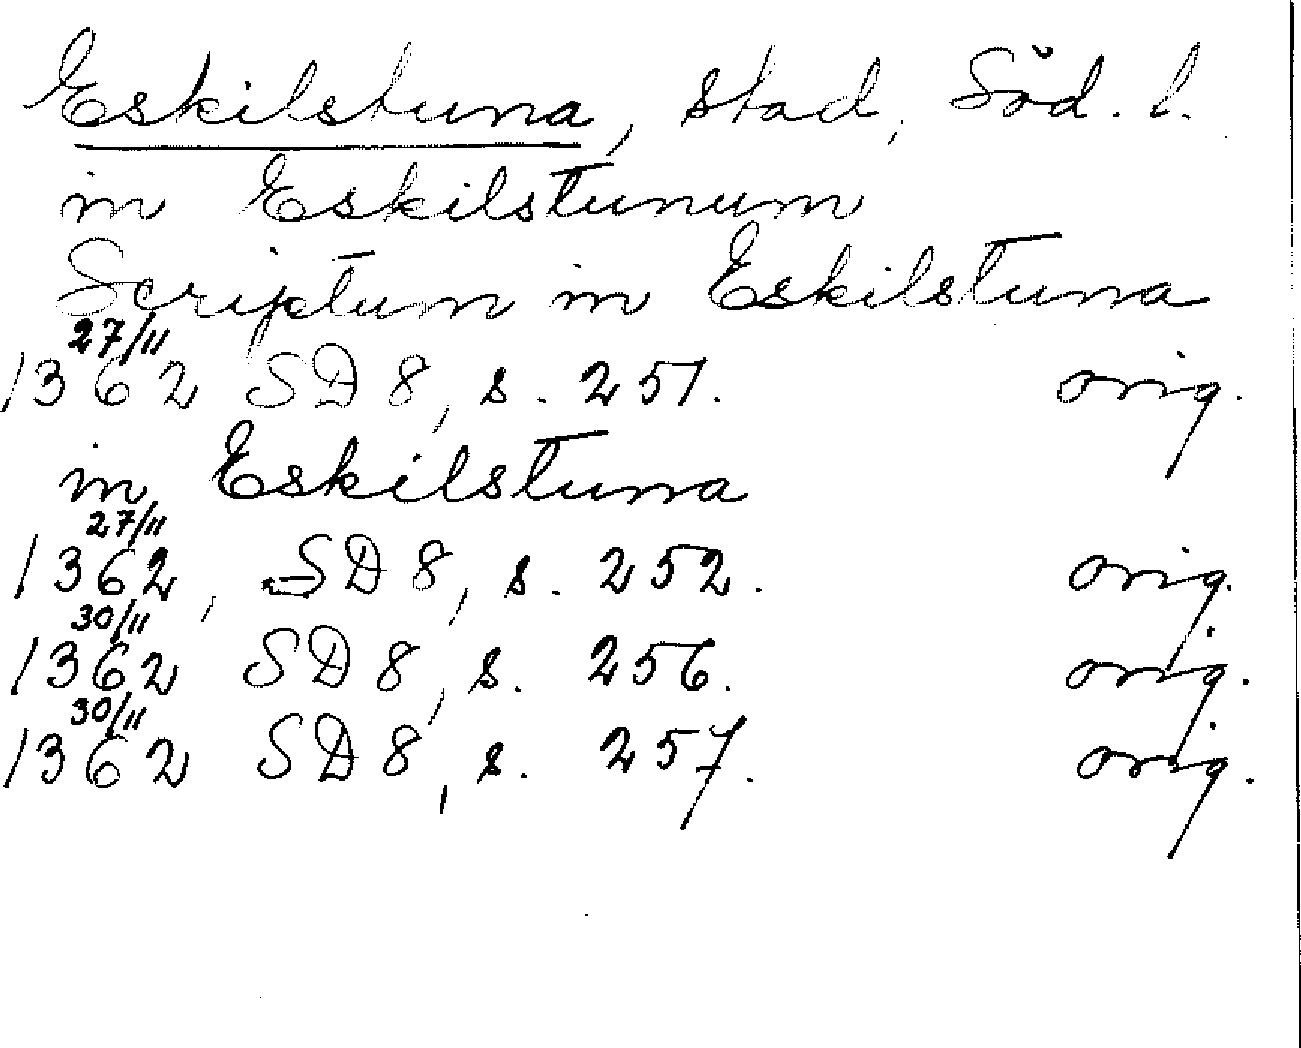 Eskilstuna, stad, Söd. l.
in Eskilstunum
Scriptum in Eskilstuna
27/11
1362 SD 8, s. 251. orig.
in Eskilstuna
27/11
1362, SD 8, s. 252. orig.
30/11
1362 SD 8, s. 256. orig.
30/11
1362 SD 8, s. 257. orig.